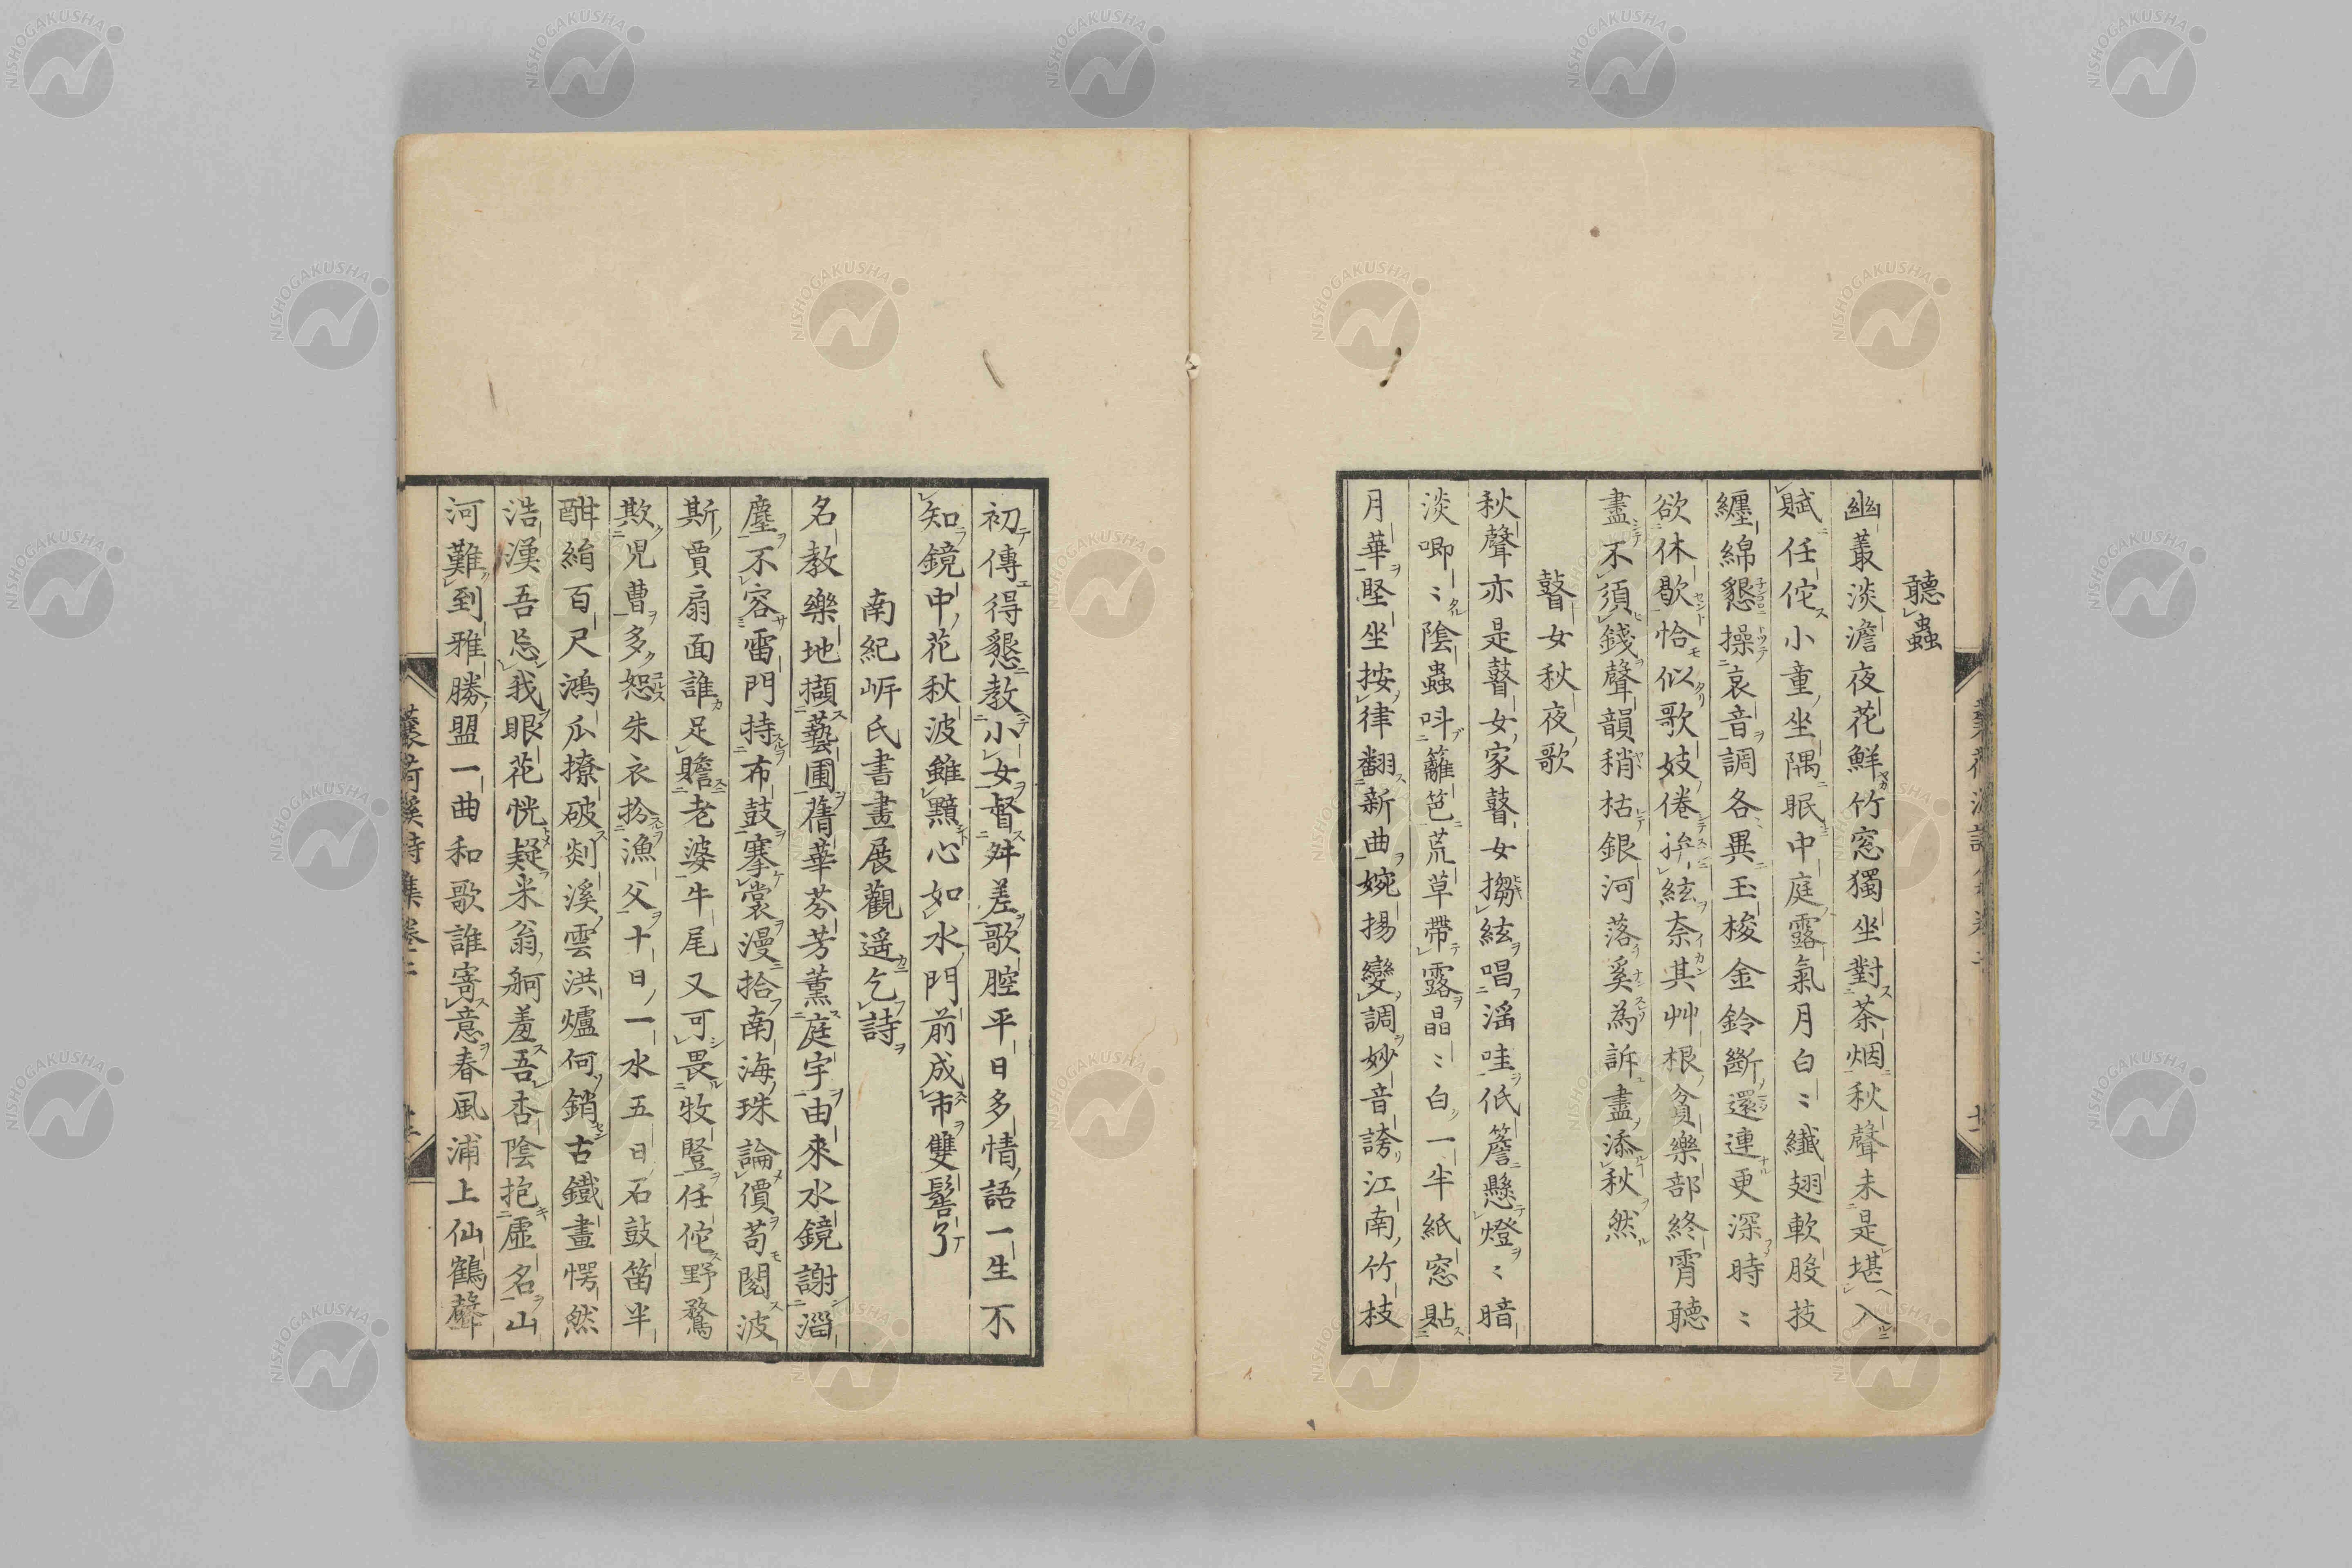 聽蟲
幽叢淡澹夜花鮮竹窓獨坐對茶烟秋聲未是堪入
賦任佗小童坐隅眠中庭露氣月白〻纎翅軟股技
纒綿懇操哀音調各異玉梭金鈴斷還連更深時〻
欲休歇恰似歌妓倦拚絃奈其艸根貧樂部終霄聽
盡不須錢聲韻稍枯銀河落奚為訴盡添秋然
瞽女秋夜歌
秋聲亦是瞽女家瞽女搊絃唱滛哇低簷懸燈〻暗
淡喞〻隂蟲呌籬笆荒草帶露晶〻白一半紙窓貼
月華堅坐按律翻新曲婉揚變調妙音誇江南竹枝
初傳得懇教小女督舛差歌腔平日多情語一生不
知鏡中花秋波雖黯心如水門前成市雙髻了
南紀岍氏書畫展觀遥乞詩
名教樂地擷藝圃蒨華芬芳薫庭宇由來水鏡謝淄
塵不容雷門持布鼓搴裳漫拾南海珠論價苟閱波
斯賈扇面誰足贍老婆牛尾又可畏牧豎任佗野鶩
欺兒曹多恕朱衣扮漁父十日一水五日石鼓笛半
酣絹百尺鴻爪撩破剡溪雲洪爐何銷古鐵畫愕然
浩漢吾忘我眼花恍疑米翁舸羞吾杏陰抱虛名山
河難到雅勝盟一曲和歌誰寄意春風浦上仙鶴聲